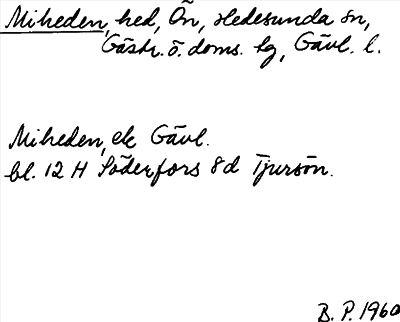 Miheden, hed, Ön, Hedesunda sn,
Gästr. ö. doms. lg, Gävl. l.
Miheden, ek Gävl.
bl. 12 H Söderfors 8d Tjursön.
B. P. 1960